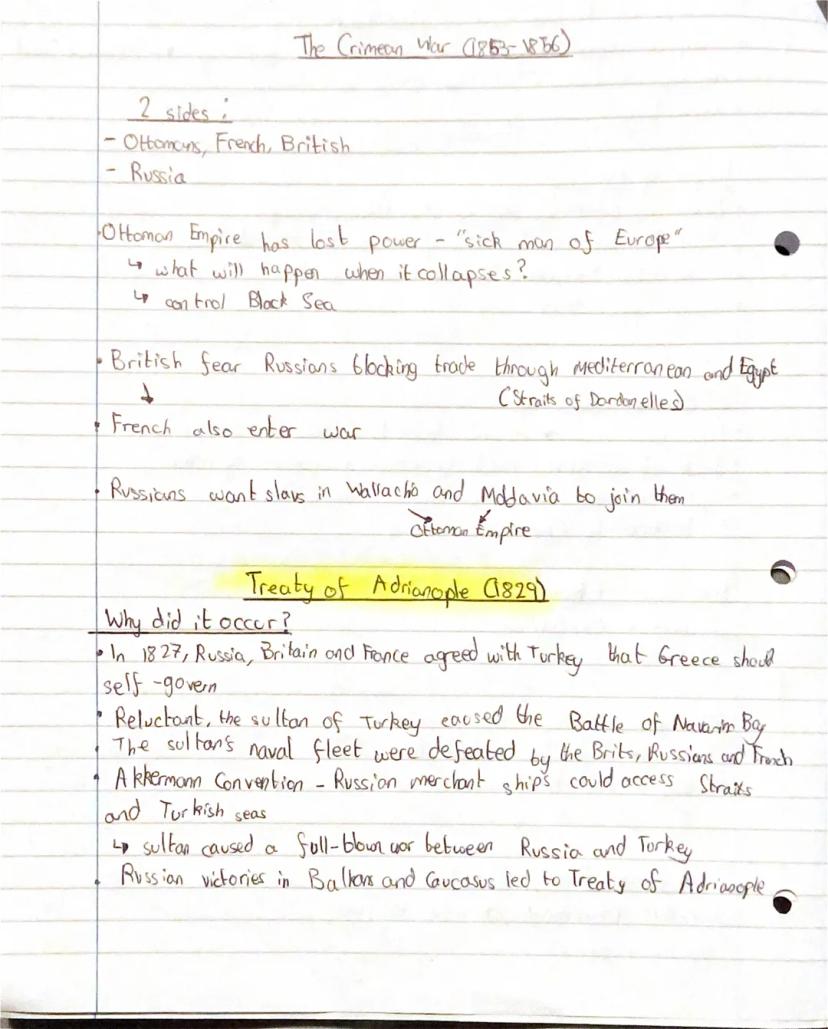 The Crimean War (1853-1856)
2 sides :
- Ottomans, French, British
- Russia
•Ottoman Empire has lost power - "sick man of Europe"
↳ what will happen when it collapses?
↳ control Black Sea
• British fear Russians blocking trade through Mediterranean and Egypt
↓ (Straits of Dardanelles)
• French also enter war
• Russians want slavs in Wallachia and Moldavia to join them
Ottoman Empire
Treaty of Adrianople (1829)
Why did it occur?
• In 1827, Russia, Britain and France agreed with Turkey that Greece should
self-govern
• Reluctant, the sultan of Turkey caused the Battle of Navarin Bay
• The sultan's naval fleet were defeated by the Brits, Russians and French
• Akkermann Convention - Russian merchant ships could access Straits
and Turkish seas
↳ sultan caused a full-blown war between Russia and Turkey
• Russian victories in Balkans and Caucasus led to Treaty of Adrianople